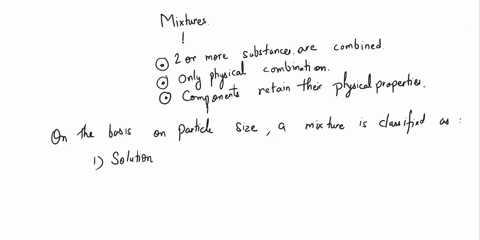 Mixtures.
!
2 or more substances are combined.
Only physical combination.
Components retain their physical properties.
On the basis on particle size, a mixture is classified as :
1) Solution